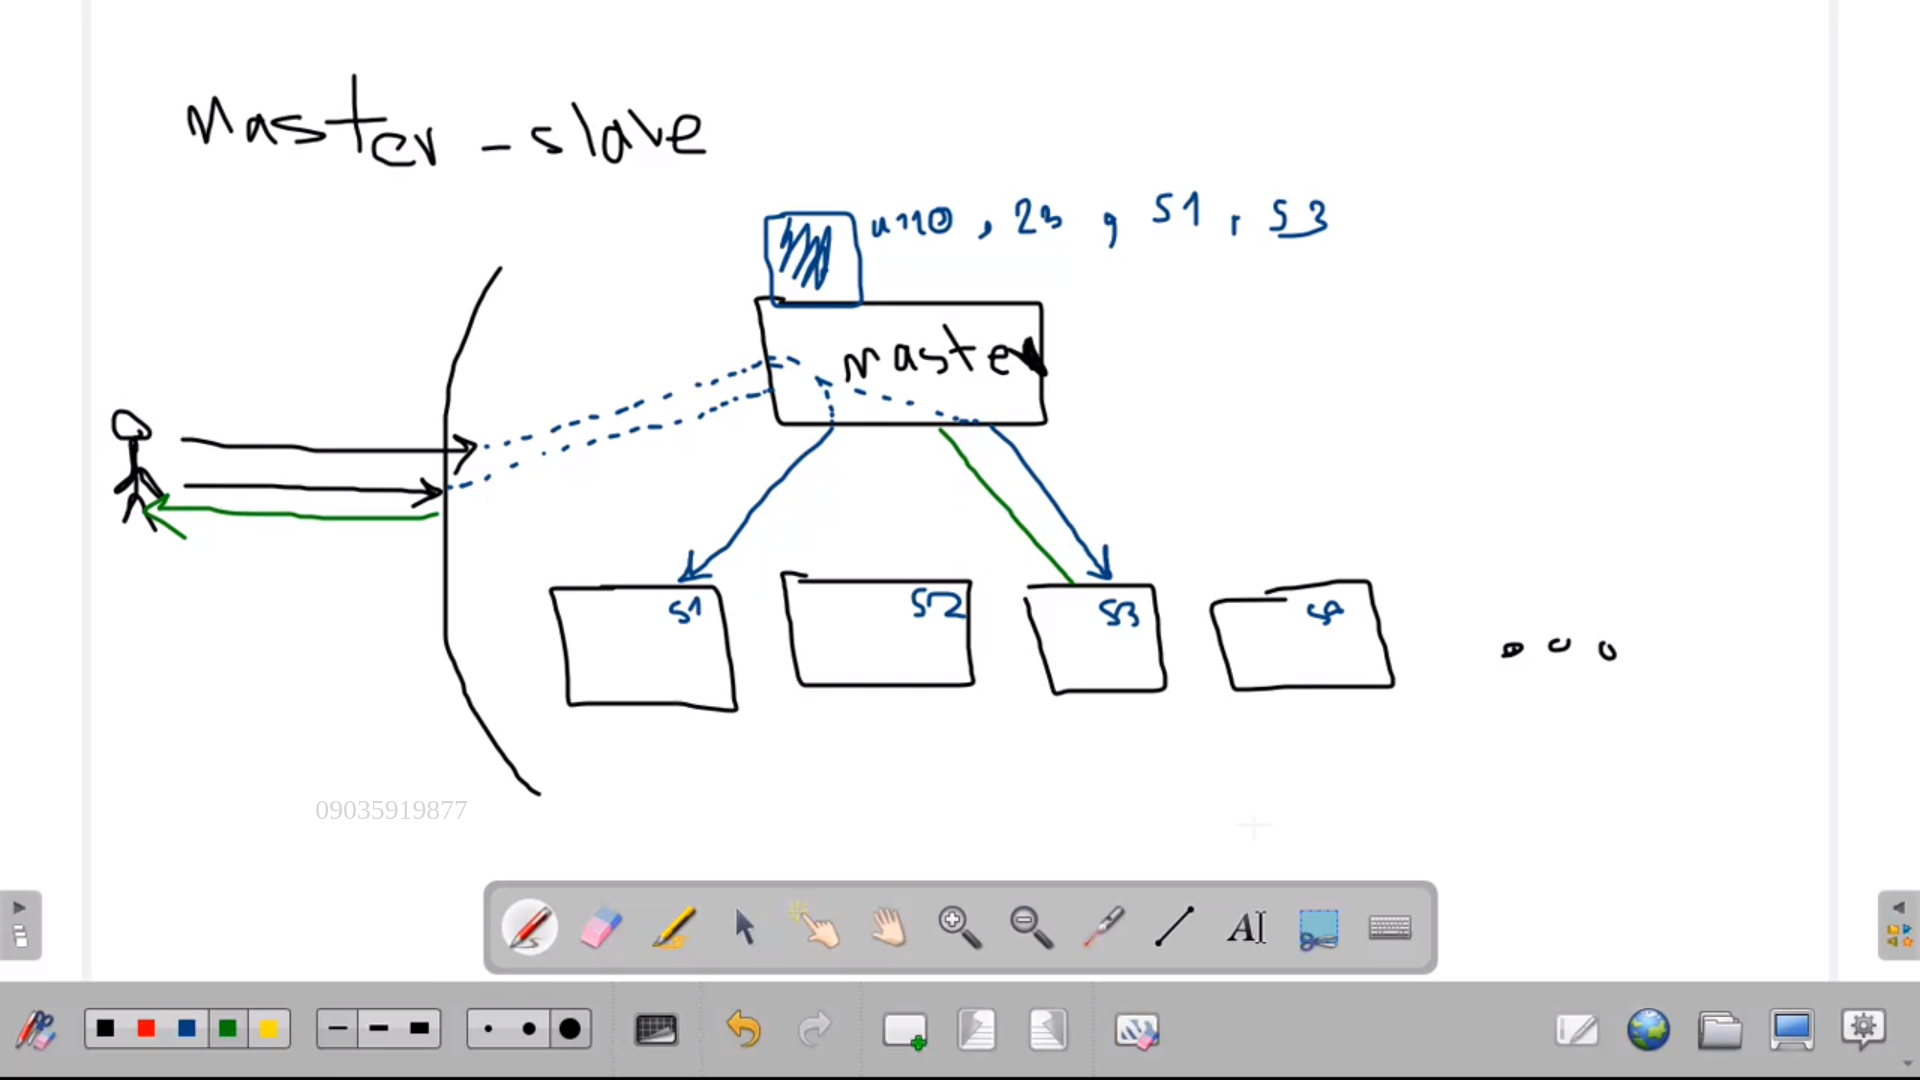 Master - slave
, 23 , S1 , S3
master
S1 S2 S3
09035919877
AI